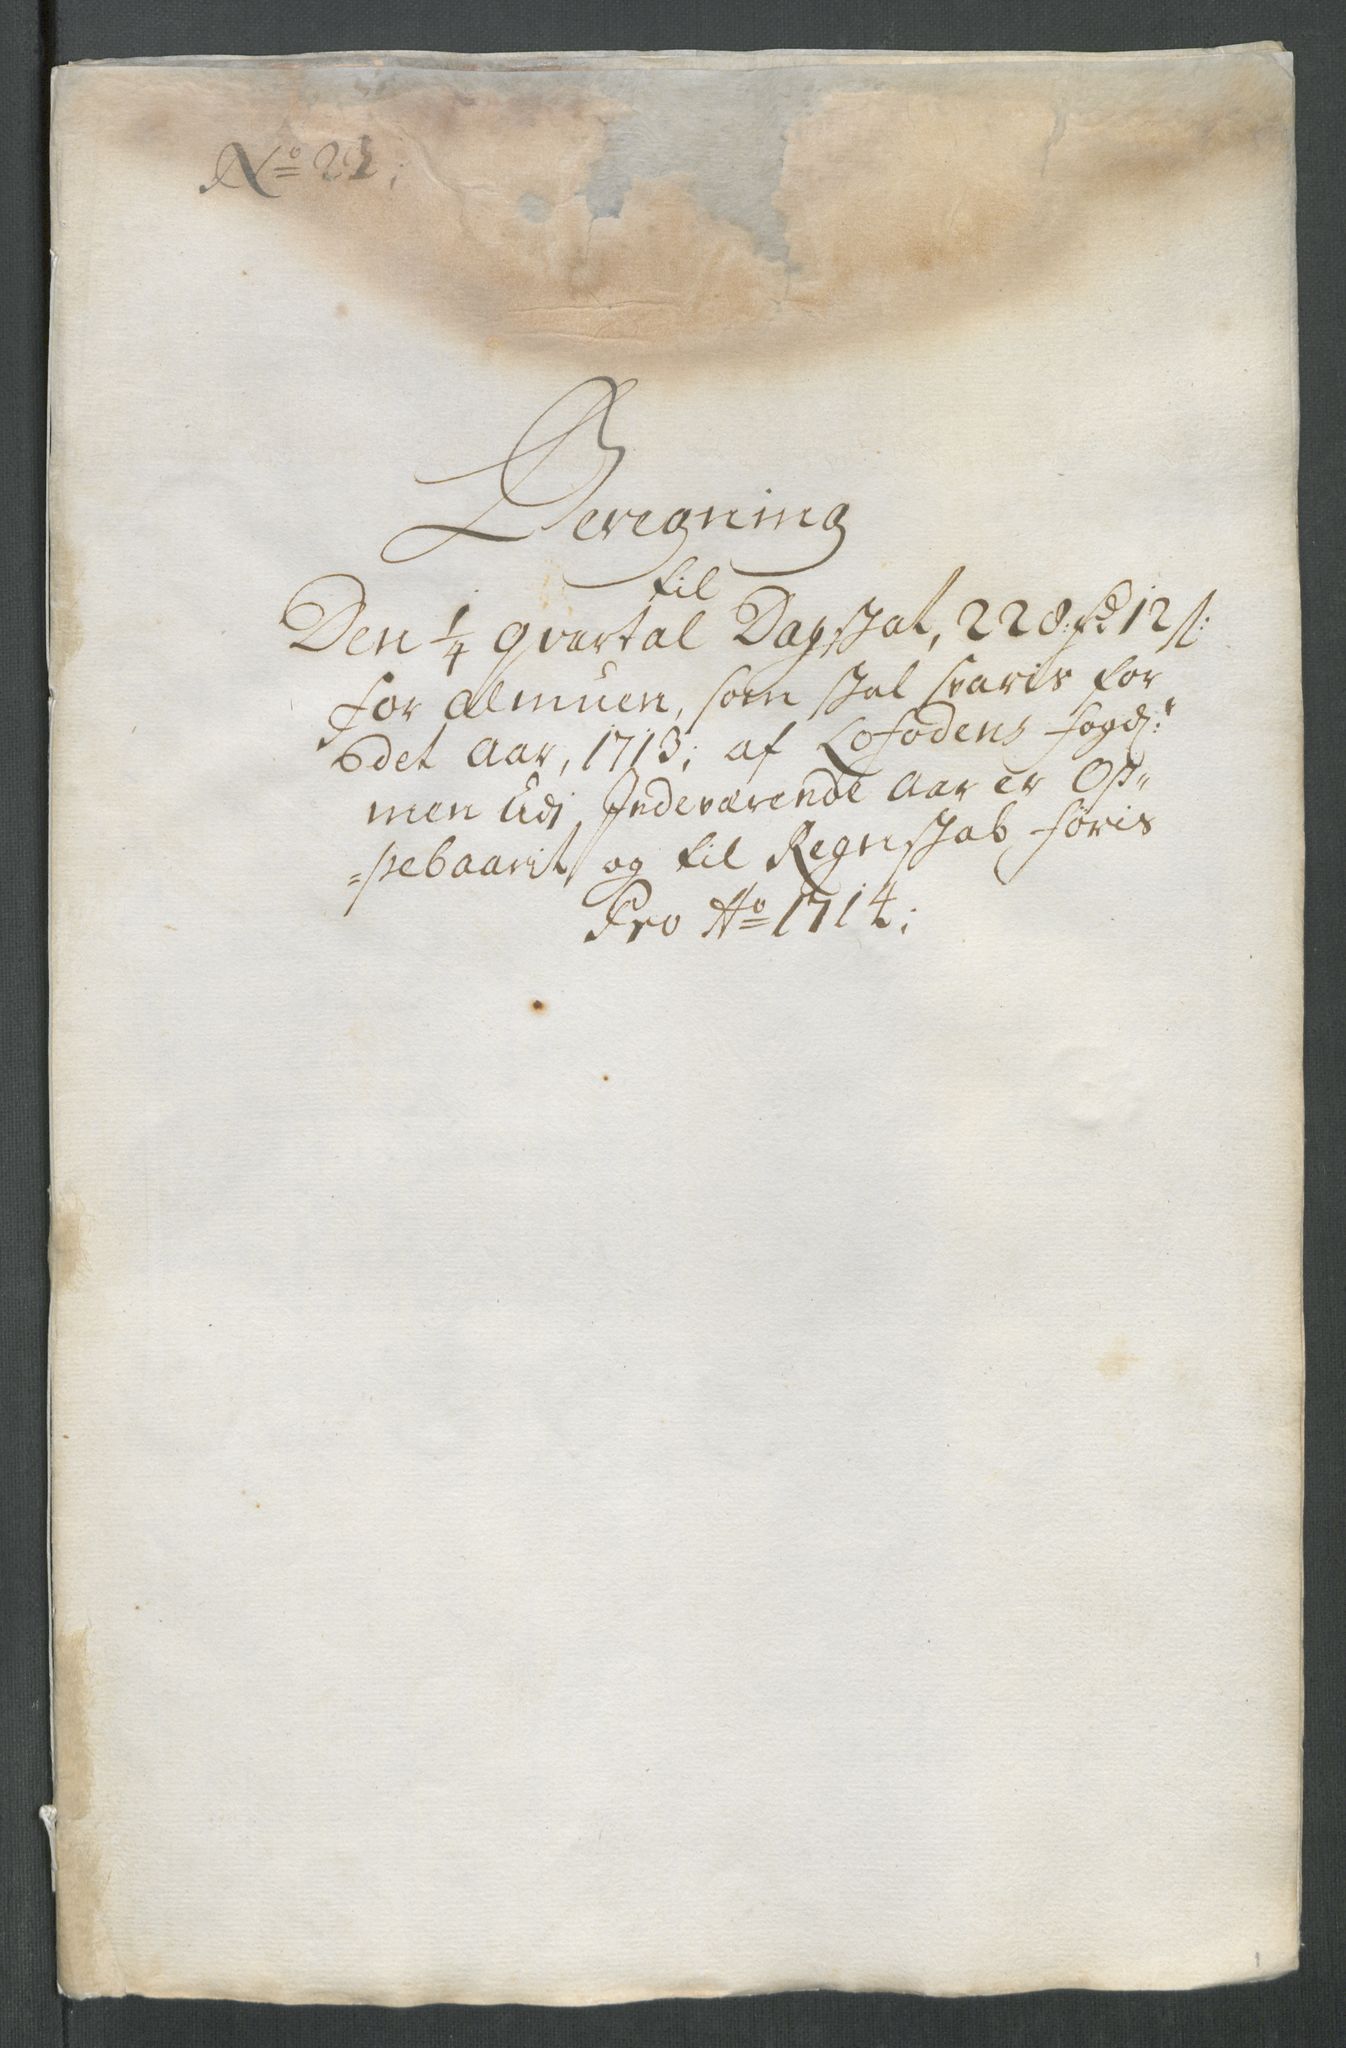 No 22;
Beregning
til
Den 1/4 qvartal Dagskat, 228 rd 12 s:
for almuen, som skal svaris for
det Aar, 1713; af Lofodens fogd:r
men Udj Indeværende Aar er Op-
=pebaarit og til Regnskab føris
Pro Ao 1714;
1